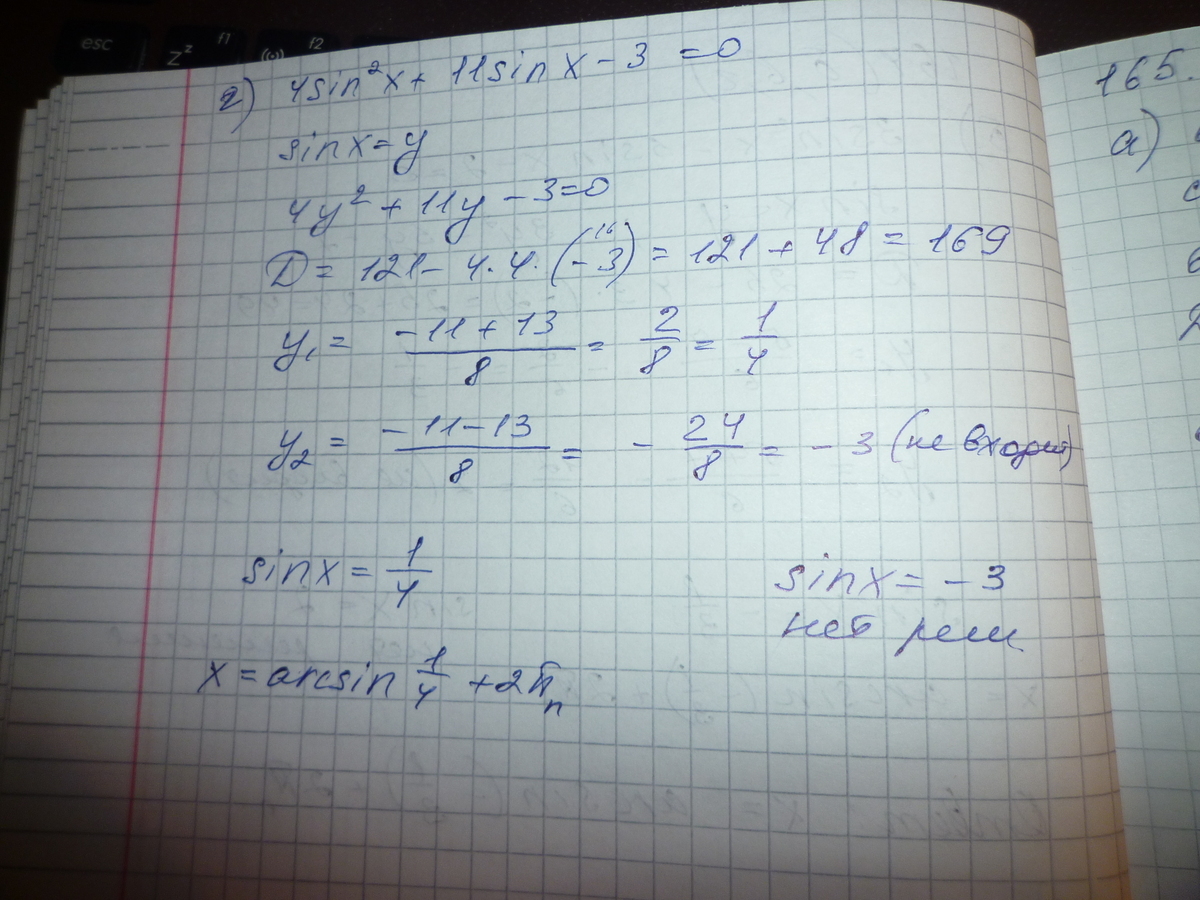 esc
Zz f1
f2
г) 4sin²x + 11sin x - 3 = 0
sinx = y
4y² + 11y - 3 = 0
16
D = 121 - 4·4·(-3) = 121 + 48 = 169
y₁ = (-11 + 13)/8 = 2/8 = 1/4
y₂ = (-11 - 13)/8 = -24/8 = -3 (не входит)
sinx = 1/4
sinx = -3
нет реш
x = arcsin 1/4 + 2πn
165.
а)